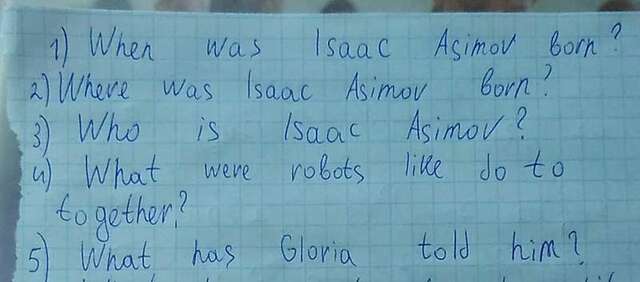 1) When was Isaac Asimov born?
2) Where was Isaac Asimov born?
3) Who is Isaac Asimov?
4) What were robots like do to
together?
5) What has Gloria told him?